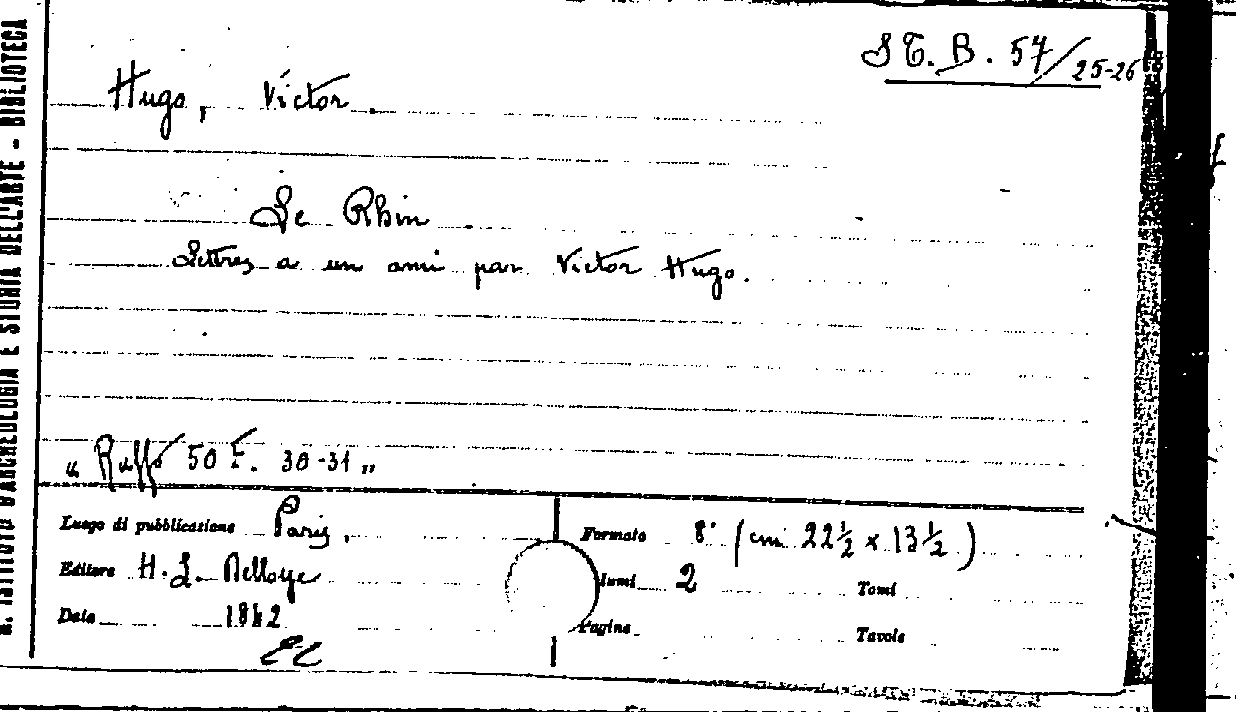 R. ISTITUTO D'ARCHEOLOGIA E STORIA DELL'ARTE - BIBLIOTECA
S T. B. 57/25-26
Hugo, Victor.
Le Rhin
Lettres a un ami par Victor Hugo.
"Ruffo 50 F. 30-31"
Luogo di pubblicazione Paris,
Formato 8° (cm 22½ x 13½)
Editore H. L. Delloye
lumi 2 Tomi
Data 1842
Pagine Tavole